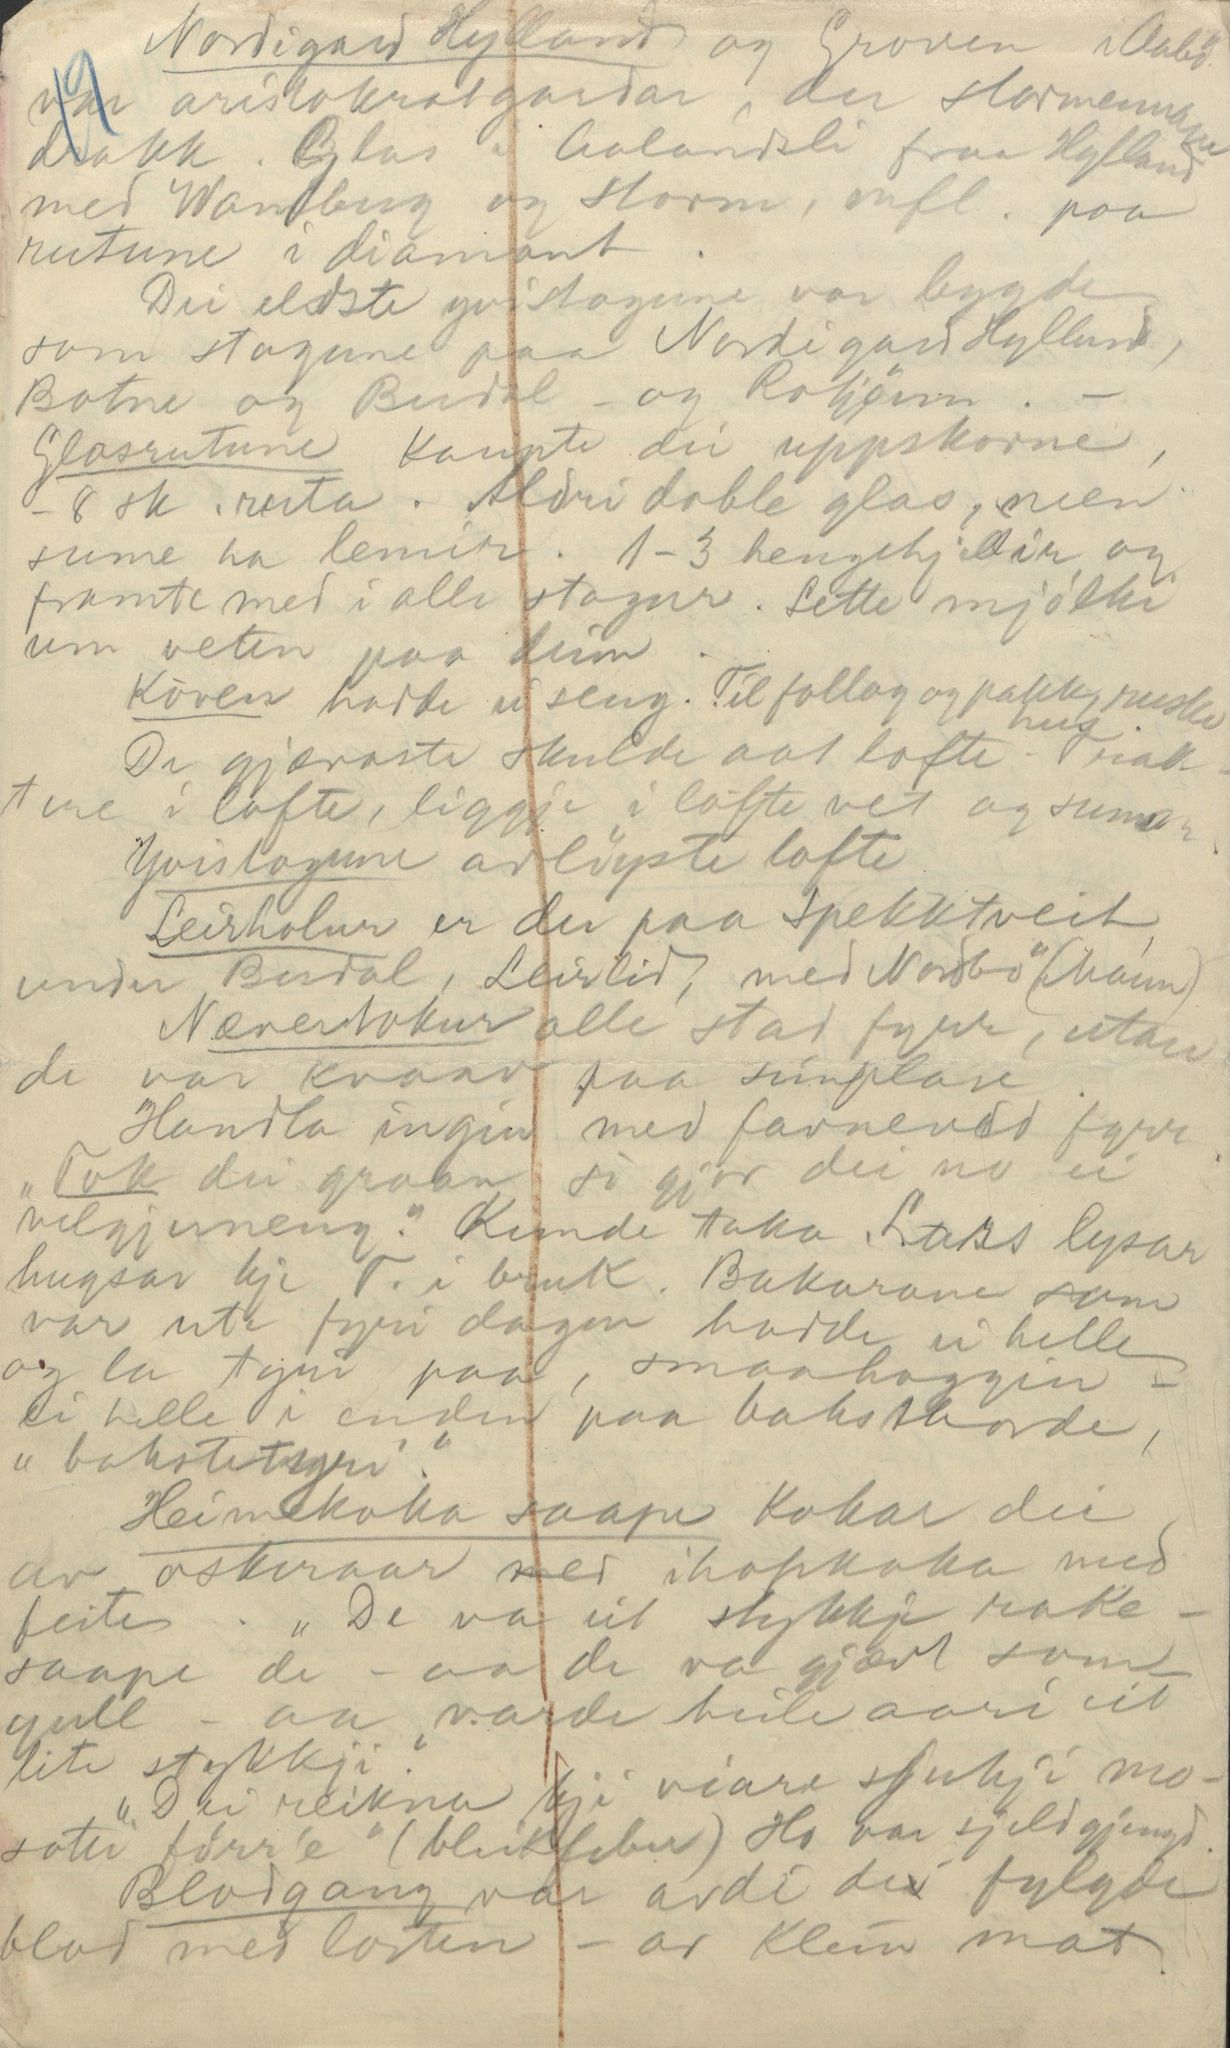 Nordigard Hylland og Groven i Aabø.
var aristokratgardar, der stormennane
drakk. Glas i Aalandsli fraa Hylland
med Wansberg og Storm, mfl. paa
rutune i diamant.
Dei eldste yvistogune var bygde
som stogune paa Nordigard Hylland,
Botne og Busdal - og Rotjønn. -
Glasrutune kaupte dei uppskorne,
- 8 sk. ruta. Aldri doble glas, men
sume ha lemir. 1-3 hengehjellir og
framte med i alle stogur. Sette mjólki
um veten paa deim.
Koven hadde ei seng. Til follog og pakk,
De gjævaste skulde aat lofte
i lofte, liggje i lofte vet og sumar.
Yvistogune avløyste lofte
Leirholur er der paa Spekktveit,
under Busdal, Leirlid, med Nordbø
Nævertokur alle stad fyrr, utan
de var kvaav paa sumplase.
Handla ingin med favneved fyrr.
"Tok dei graan, so gjør dei no ei
velgjerneng". Kunde taka Lars lysar
hugsar kje T. i bruk. Bakarane som
var ute fyri dagen hadde ei helle
og la tyri paa, smaahoggin -
ei helle i enden paa baksteborde,
"bakstetyri".
Heimekoka saape kokar dei
av oskeraar med ihopkoka med
feite. "De va eit stykkje rake-
saape de - aa de va gjævt som
gull - aa varde heile aari eit
lite stykkji".
"Dei reikna kji viare sjukji mo-
sotti førr'e" (bleikfeber) Ho var sjeldgjengd.
Blodgang var avdi dei fylgde
blod med lorten - av klein mat.